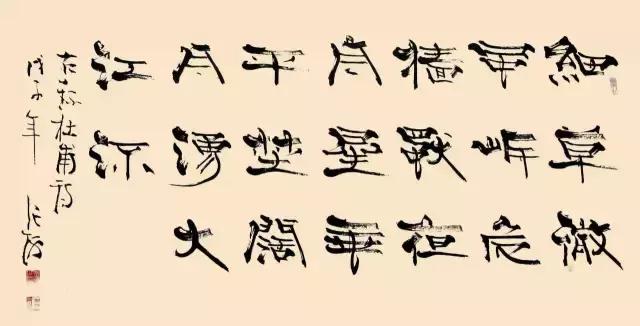 細草微
風岸危
檣獨夜
舟星垂
平埜闊
月湧大
江流
右錄杜甫詩
戊子年